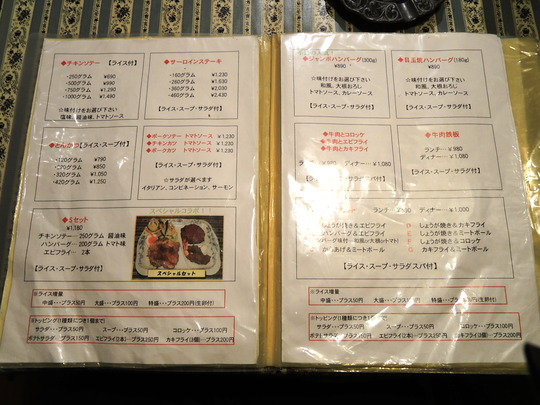 ◆チキンソテー 【ライス付】
・250グラム ¥690
・500グラム ¥990
・750グラム ¥1,290
・1000グラム ¥1,490
☆味付けをお選び下さい
塩味、醤油味、トマト味
◆サーロインステーキ
・160グラム ¥1,230
・260グラム ¥1,630
・360グラム ¥2,030
・460グラム ¥2,430
【ライス・スープ・サラダ付】
【ライス・スープ付】
・120グラム ¥790
グラム ¥850
・320グラム ¥1,050
・420グラム ¥1,250
◆ポークソテー トマトソース ¥1,230
◆チキンカツ トマトソース ¥1,230
◆ポークカツ トマトソース ¥1,230
【ライス・スープ・サラダ付】
☆サラダが選べます
イタリアン、コンビネーション、サーモン
◆Sセット
¥1,180
チキンソテー…250グラム 醤油味
ハンバーグ…200グラム トマト味
エビフライ… 2本
【ライス・スープ・サラダ付】
スペシャルコラボ!!
スペシャルセット
※ライス増量
中盛…プラス50円 大盛…プラス100円 特盛…プラス200円(生卵付)
※トッピング(1種類につき1個まで)
サラダ…プラス50円 スープ…プラス50円 コロッケ…プラス100円
ポテトサラダ…プラス150円 エビフライ(2本)…プラス250円 カキフライ(3個)…プラス200円
◆ジャンボハンバーグ(300g)
¥890
☆味付けをお選び下さい
和風、大根おろし
トマトソース、カレーソース
【ライス・スープ・サラダ付】
◆目玉焼ハンバーグ(180g)
¥850
☆味付けをお選び下さい
和風、大根おろし
トマトソース、カレーソース
【ライス・スープ・サラダ付】
◆牛肉とコロッケ
◆牛肉とエビフライ
◆牛肉とカキフライ
ディナー…¥1,080
【ライス・スープ・サラダ付】
◆牛肉鉄板
ランチ…¥980
ディナー…¥1,080
【ライス・スープ・サラダ付】
ランチ ディナー…¥1,000
しょうが焼き&エビフライ
しょうが焼き&カキフライ
ハンバーグ&エビフライ
しょうが焼き&コロッケ
しょうが焼き&ミートボール
&ミートボール
カキフライ&ミートボール
【ライス・スープ・サラダスパ付】
※ライス増量
中盛…プラス50円 大盛…プラス100円 特盛…プラス200円(生卵付)
※トッピング(1種類につき1個まで)
サラダ…プラス50円 スープ…プラス50円 コロッケ…プラス100円
サラダ…プラス150円 エビフライ(2本)…プラス250円 カキフライ(3個)…プラス200円